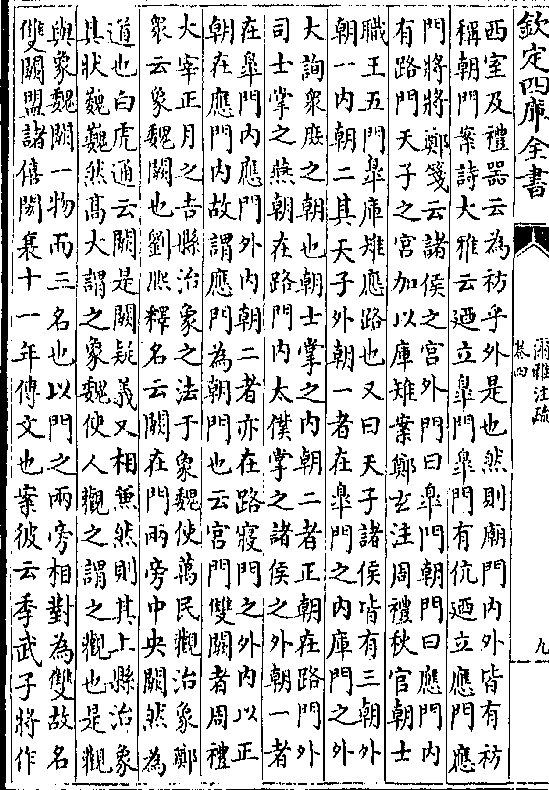 欽定四庫全書
爾雅注疏
卷四
九
西室及禮器云為祊乎外是也然則廟門内外皆有祊
稱朝門案詩大雅云廼立臯門臯門有伉廼立應門應
門將將鄭箋云諸侯之宫外門曰臯門朝門曰應門内
有路門天子之宫加以庫雉案鄭玄注周禮秋官朝士
職王五門臯庫雉應路也又曰天子諸侯皆有三朝外
朝一内朝二其天子外朝一者在臯門之内庫門之外
大詢衆庶之朝也朝士掌之内朝二者正朝在路門外
司士掌之燕朝在路門内太僕掌之諸侯之外朝一者
在臯門内應門外内朝二者亦在路寢門之外内以正
朝在應門内故謂應門為朝門也云宫門雙闕者周禮
大宰正月之吉縣治象之法于象魏使萬民觀治象鄭
衆云象魏闕也劉熈釋名云闕在門兩旁中央闕然為
道也白虎通云闕是闕疑義又相兼然則其上縣治象
其狀巍巍然髙大謂之象魏使人觀之謂之觀也是觀
與象魏闕一物而三名也以門之兩旁相對為雙故名
雙闕盟諸僖閎襄十一年傳文也案彼云季武子將作